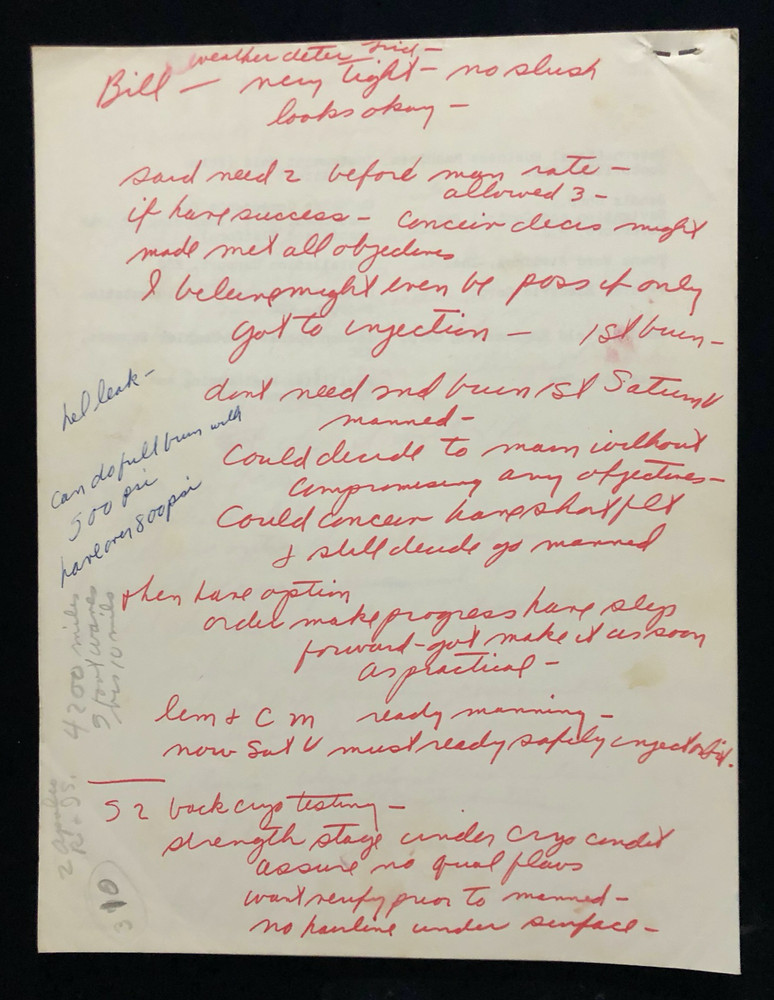 weather deter
Bill — very tight — no slush
looks okay —
said need 2 before man rate —
allowed 3 —
if have success — conceiv decis might
made met all objectives
I believe might even be poss if only
got to injection — 1st burn —
dont need 2nd burn 1st Saturn V
manned —
Could decide to man without
compromising any objectives —
Could conceiv have short flt
& still decide go manned
when have option
order make progress have step
forward — got make it as soon
as practical —
lem & CM ready manning —
now Sat V must ready safely inject orbit.
S2 back cryo testing —
strength stage under cryo condit
assure no qual flaws
want verify prior to manned —
no hairline under surface —
hel leak —
can do full burn with
500 psi
have over 800 psi
4200 miles
9 foot waves
vis 10 miles
2
310